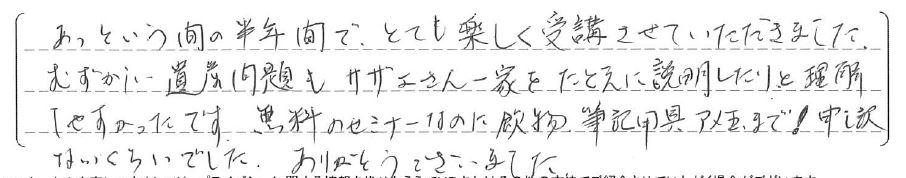 あっという間の半年間で、とても楽しく受講させていただきました。
むずかしい遺産問題もサザエさん一家をたとえに説明したりと理解
しやすかったです 無料のセミナーなのに飲物、筆記用具、アメ玉まで！申し訳
ないくらいでした。ありがとうございました